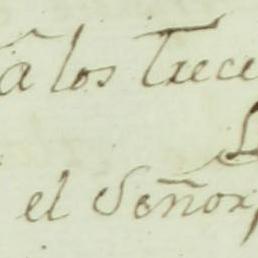 a los Trece
el Señor